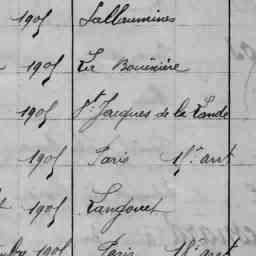 1905 Sallaumines
1905 La Bouëxière
1905 St. Jacques de la Lande
1905 Paris 15e arrt
1905 Langouet
1905 Paris 18e arrt